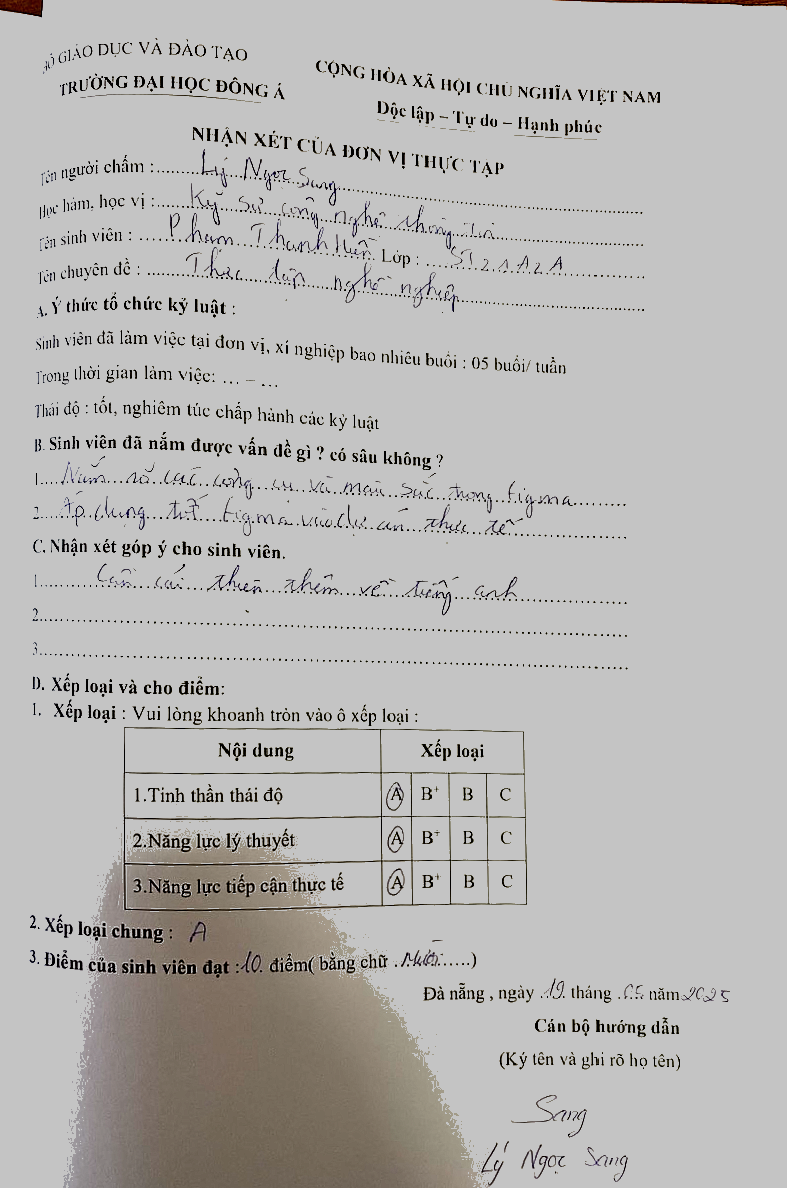 BỘ GIÁO DỤC VÀ ĐÀO TẠO
TRƯỜNG ĐẠI HỌC ĐÔNG Á
CỘNG HÒA XÃ HỘI CHỦ NGHĨA VIỆT NAM
Độc lập – Tự do – Hạnh phúc
NHẬN XÉT CỦA ĐƠN VỊ THỰC TẬP
Tên người chấm : Lý Ngọc Sang
Học hàm, học vị : Kỹ sư công nghệ thông tin
Tên sinh viên : Phạm Thanh Hiền Lớp : ST21A2A
Tên chuyên đề : Thực tập nghề nghiệp
A. Ý thức tổ chức kỷ luật :
Sinh viên đã làm việc tại đơn vị, xí nghiệp bao nhiêu buổi : 05 buổi/ tuần
Trong thời gian làm việc: ... – ...
Thái độ : tốt, nghiêm túc chấp hành các kỷ luật
B. Sinh viên đã nắm được vấn đề gì ? có sâu không ?
1. Nắm rõ các công cụ và màu sắc trong figma
2. Áp dụng tốt figma vào dự án thực tế
C. Nhận xét góp ý cho sinh viên.
1. Cần cải thiện thêm về tiếng anh
2.
3.
D. Xếp loại và cho điểm:
1. Xếp loại : Vui lòng khoanh tròn vào ô xếp loại :
Nội dung Xếp loại
1.Tinh thần thái độ A B+ B C
2.Năng lực lý thuyết A B+ B C
3.Năng lực tiếp cận thực tế A B+ B C
2. Xếp loại chung : A
3. Điểm của sinh viên đạt :10. điểm( bằng chữ .Mười.....)
Đà nẵng , ngày 19 tháng 05 năm 2025
Cán bộ hướng dẫn
(Ký tên và ghi rõ họ tên)
Sang
Lý Ngọc Sang